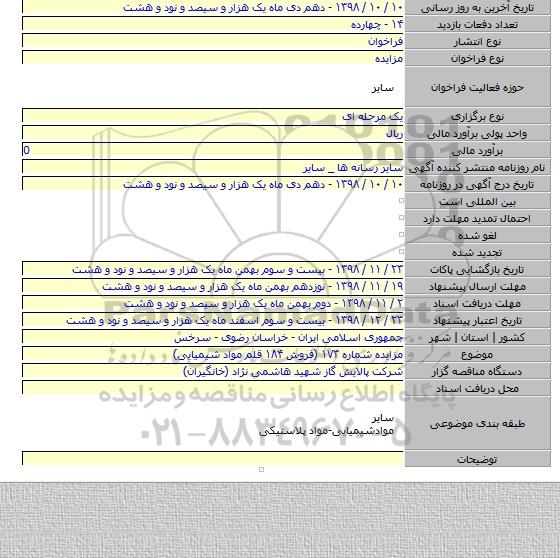 تاریخ آخرین به روز رسانی ۱۰ / ۱۰ / ۱۳۹۸ - دهم دی ماه یک هزار و سیصد و نود و هشت
تعداد دفعات بازدید ۱۴ - چهارده
نوع انتشار فراخوان
نوع فراخوان مزایده
حوزه فعالیت فراخوان سایر
نوع برگزاری یک مرحله ای
واحد پولی برآورد مالی ریال
برآورد مالی 0
نام روزنامه منتشر کننده آگهی سایر رسانه ها _ سایر
تاریخ درج آگهی در روزنامه ۱۰ / ۱۰ / ۱۳۹۸ - دهم دی ماه یک هزار و سیصد و نود و هشت
بین المللی است
احتمال تمدید مهلت دارد
لغو شده
تجدید شده
تاریخ بازگشایی پاکات ۲۳ / ۱۱ / ۱۳۹۸ - بیست و سوم بهمن ماه یک هزار و سیصد و نود و هشت
مهلت ارسال پیشنهاد ۱۹ / ۱۱ / ۱۳۹۸ - نوزدهم بهمن ماه یک هزار و سیصد و نود و هشت
مهلت دریافت اسناد ۲ / ۱۱ / ۱۳۹۸ - دوم بهمن ماه یک هزار و سیصد و نود و هشت
تاریخ اعتبار پیشنهاد ۲۳ / ۱۲ / ۱۳۹۸ - بیست و سوم اسفند ماه یک هزار و سیصد و نود و هشت
کشور | استان | شهر جمهوری اسلامی ایران - خراسان رضوی - سرخس
موضوع مزایده شماره ۱۷۳ (فروش ۱۸۴ قلم مواد شیمیایی)
دستگاه مناقصه گزار شرکت پالایش گاز شهید هاشمی نژاد (خانگیران)
محل دریافت اسناد
طبقه بندی موضوعی سایر
موادشیمیایی-مواد پلاستیکی
توضیحات
ParsNamadData
پایگاه اطلاع رسانی مناقصه و مزایده
۰۲۱-۸۸۳۴۹۶۷۰-۵